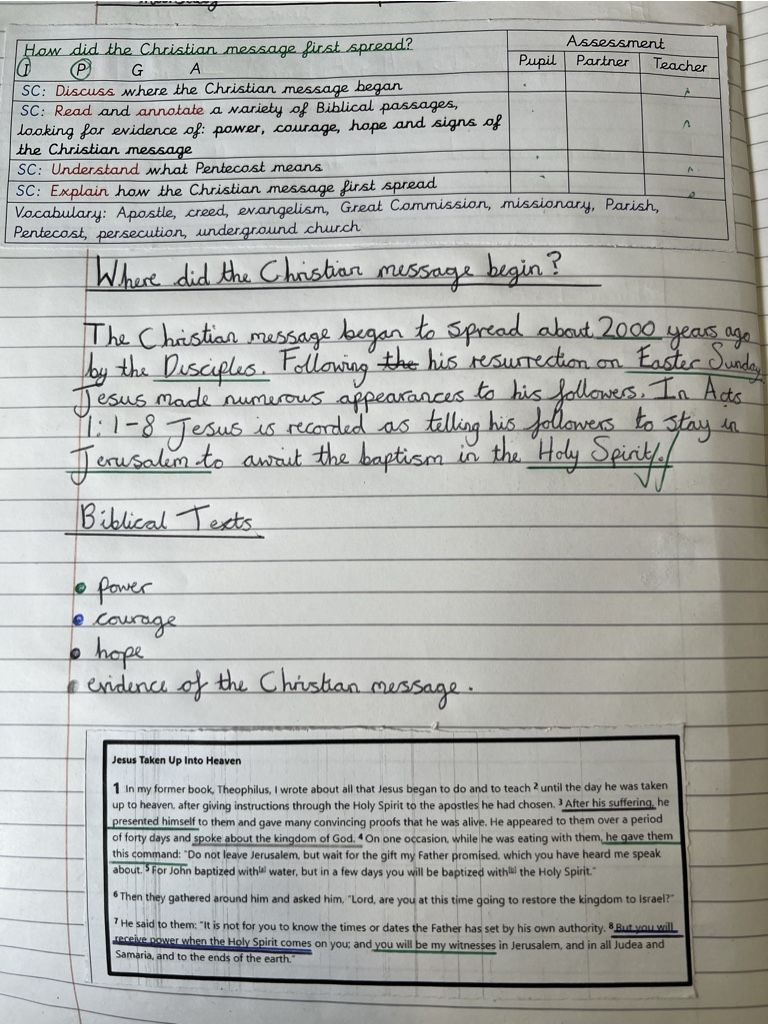 How did the Christian message first spread?
Assessment
I P G A
Pupil Partner Teacher
SC: Discuss where the Christian message began
SC: Read and annotate a variety of Biblical passages,
looking for evidence of: power, courage, hope and signs of
the Christian message
SC: Understand what Pentecost means
SC: Explain how the Christian message first spread
Vocabulary: Apostle, creed, evangelism, Great Commission, missionary, Parish,
Pentecost, persecution, underground church
Where did the Christian message begin?
The Christian message began to spread about 2000 years ago
by the Disciples. Following the his resurrection on Easter Sunday
Jesus made numerous appearances to his followers. In Acts
1:1-8 Jesus is recorded as telling his followers to stay in
Jerusalem to await the baptism in the Holy Spirit.
Biblical Texts
• power
• courage
• hope
• evidence of the Christian message.
Jesus Taken Up Into Heaven
1 In my former book, Theophilus, I wrote about all that Jesus began to do and to teach 2 until the day he was taken
up to heaven, after giving instructions through the Holy Spirit to the apostles he had chosen. 3 After his suffering, he
presented himself to them and gave many convincing proofs that he was alive. He appeared to them over a period
of forty days and spoke about the kingdom of God. 4 On one occasion, while he was eating with them, he gave them
this command: "Do not leave Jerusalem, but wait for the gift my Father promised, which you have heard me speak
about. 5 For John baptized with[a] water, but in a few days you will be baptized with[b] the Holy Spirit."
6 Then they gathered around him and asked him, "Lord, are you at this time going to restore the kingdom to Israel?"
7 He said to them: "It is not for you to know the times or dates the Father has set by his own authority. 8 But you will
receive power when the Holy Spirit comes on you; and you will be my witnesses in Jerusalem, and in all Judea and
Samaria, and to the ends of the earth."